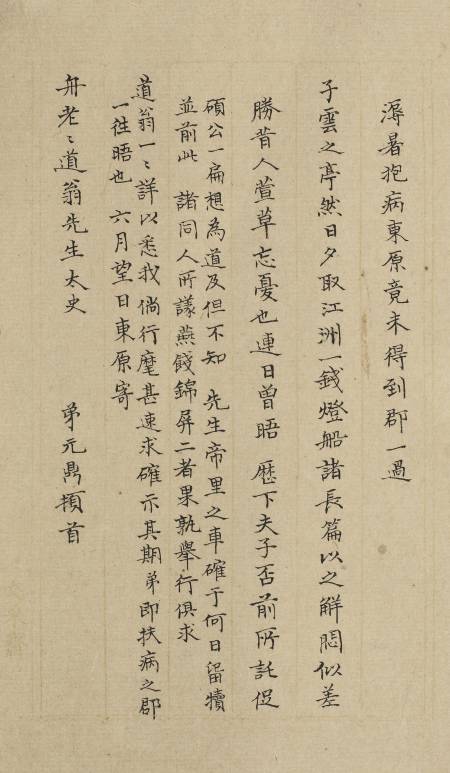 溽暑抱病東原竟未得到郡一過
子雲之亭然日夕取江洲一錢燈船諸長篇以之觧悶似差
勝昔人萱草忘憂也連日曾晤 歷下夫子否前所託促
碩公一扁想為道及但不知 先生帝里之車確于何日留犢
並前此 諸同人所議燕餞錦屏二者果孰舉行俱求
道翁一〻詳以悉我倘行麾甚速求確示其期弟即扶病之郡
一徃晤也 六月望日東原寄
舟老〻道翁先生太史 弟元鼎頓首